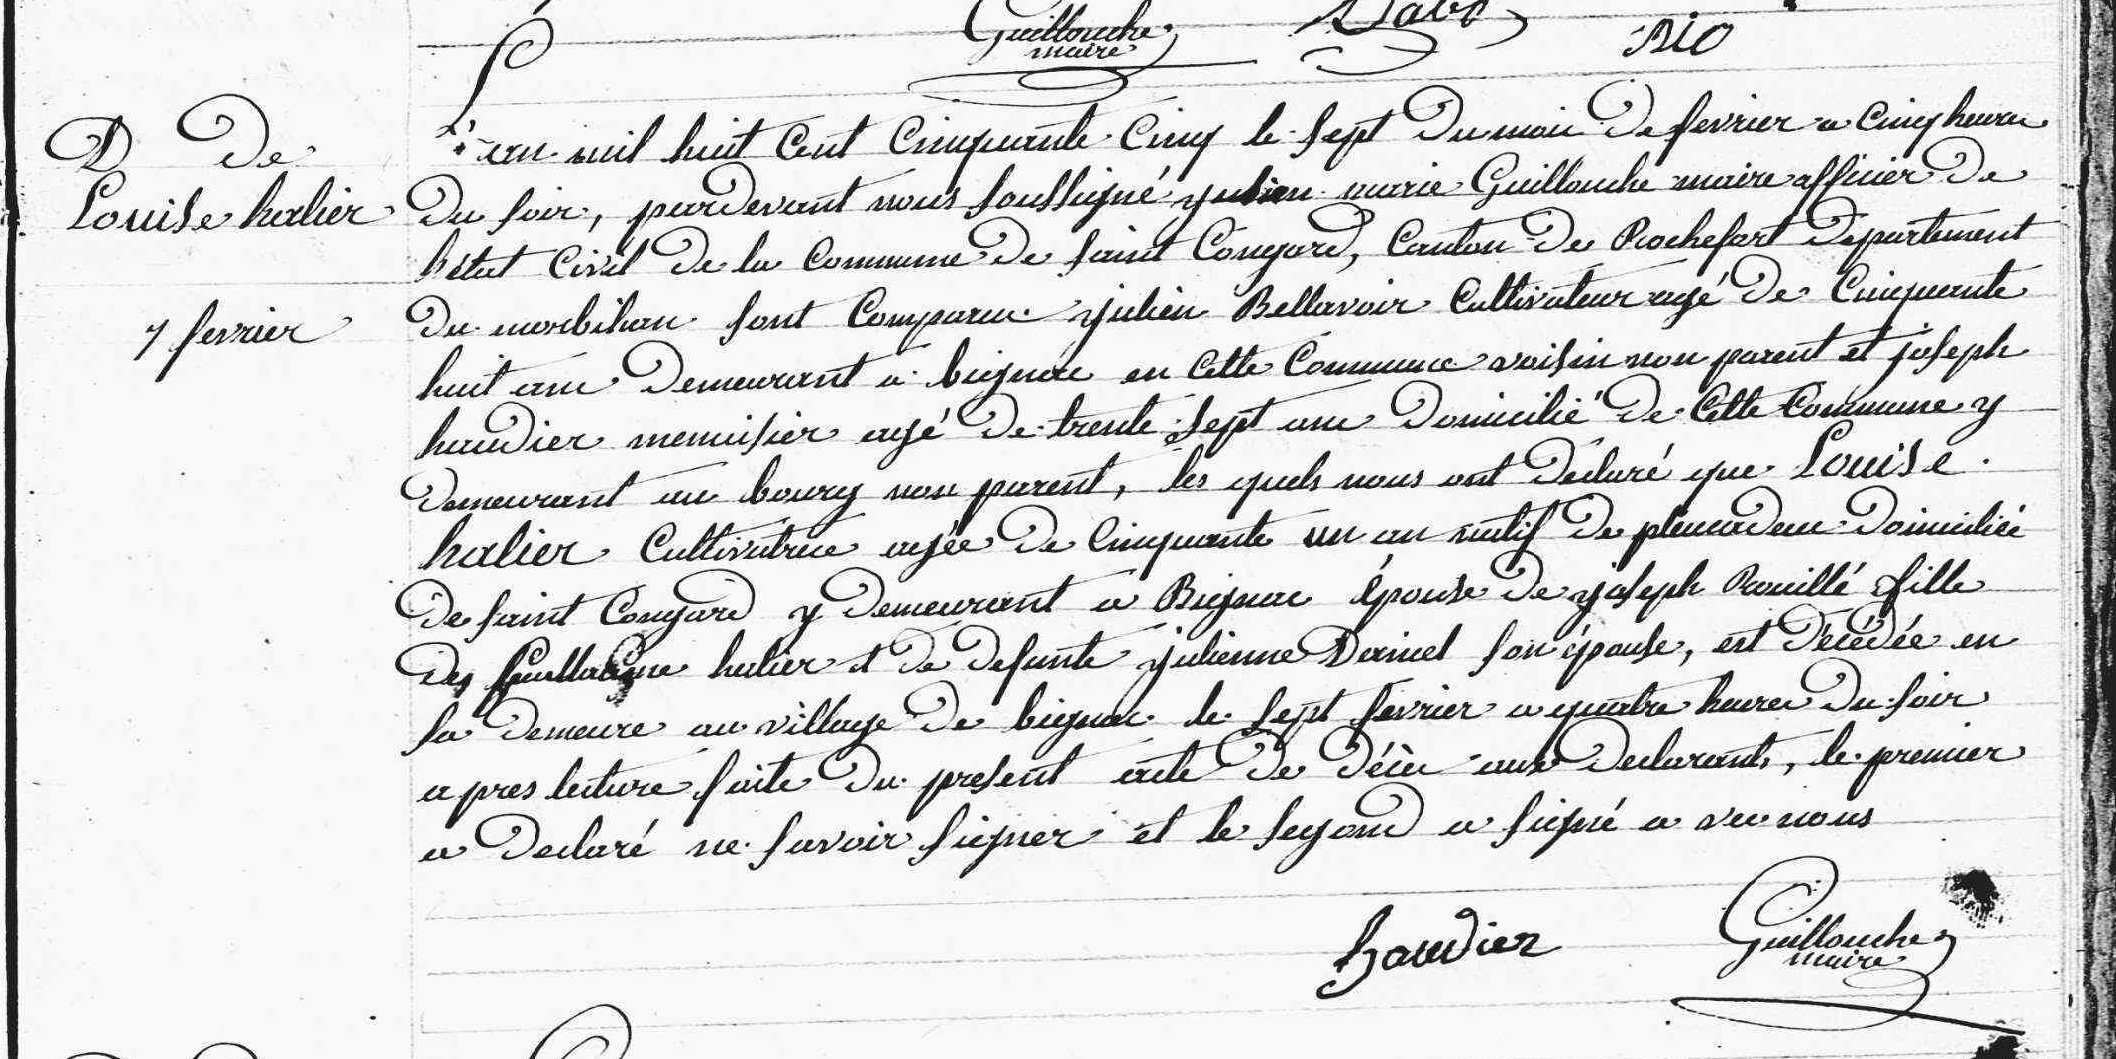 Guillouche
maire
Rio
D de
Louise halier
7 fevrier
L'an mil huit Cent Cinquante Cinq le sept du mois de fevrier a Cinq heures
du soir, pardevant nous soussigné julien marie Guillouche maire officier de
l'état Civil de la Commune de saint Congard, Canton de Rochefort département
du morbihan sont Comparus julien Bellavoir Cultivateur agé de Cinquante
huit ans demeurant a bignac en Cette Commune voisin non parent et joseph
haudier menuisier agé de trente sept ans domicilié de Cette Commune y
demeurant au bourg non parent, les quels nous ont déclaré que Louise
halier Cultivatrice agée de Cinquante un an natif de pleucadeuc domiciliée
de saint Congard y demeurant a Bignac épouse de joseph Rouillé fille
de halier et de defunte julienne Daniel son épouse, est décédée en
sa demeure au village de bignac le sept fevrier a quatre heures du soir
apres lecture faite du present acte de décès aux declarants, le premier
a declaré ne savoir signer et le segond a signé a vec nous
haudier
Guillouche
maire